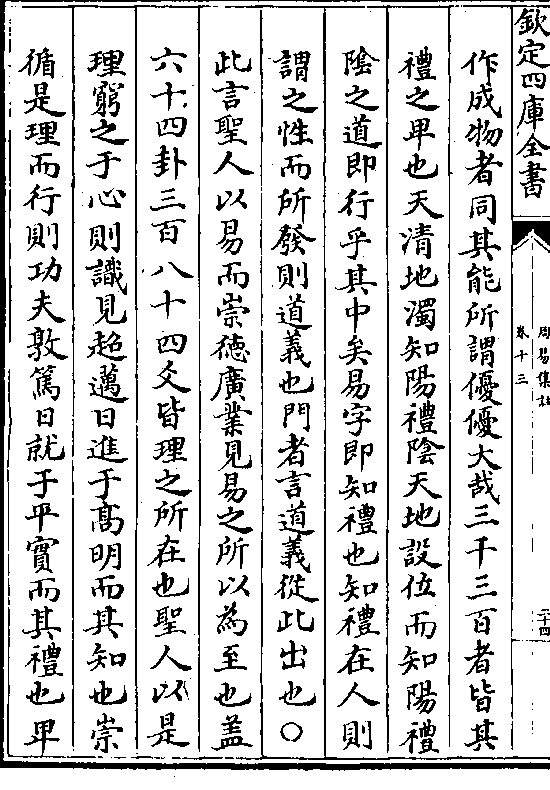 欽定四庫全書
周易集註
卷十三
二十四
作成物者同其能所謂優優大哉三千三百者皆其
禮之卑也天清地濁知陽禮陰天地設位而知陽禮
陰之道即行乎其中矣易字即知禮也知禮在人則
謂之性而所發則道義也門者言道義從此出也○
此言聖人以易而崇德廣業見易之所以為至也盖
六十四卦三百八十四爻皆理之所在也聖人以是
理窮之于心則識見超邁日進于髙明而其知也崇
循是理而行則功夫敦篤日就于平實而其禮也卑